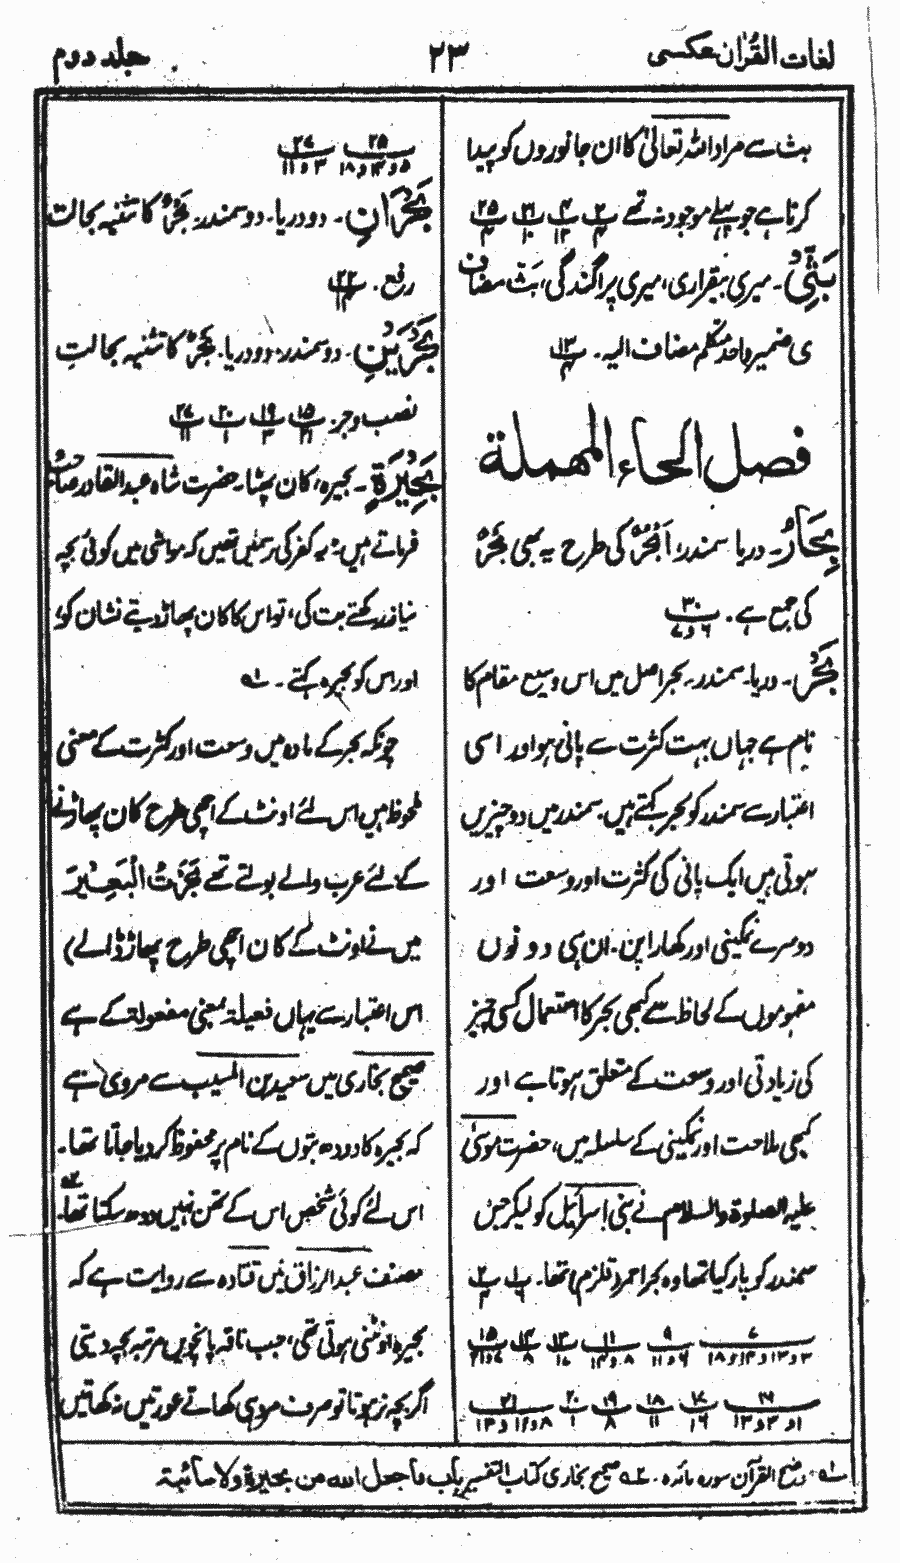 لغات القرآن عکسی ۲۳ جلد دوم
بث سے مراد اللہ تعالیٰ کا ان جانوروں کو پیدا
کرتا ہے جو پہلے موجود نہ تھے
بَثِّیْ ۔ میری بیقراری، میری پراگندگی، بَثّ مضاف
ی ضمیر واحد متکلم مضاف الیہ ۔
فصل الحاء المهملة
بِحَارٌ ۔ دریا سمندر، اَبْحُرٌ کی طرح یہ بھی بَحْرٌ
کی جمع ہے ۔
بَحْرٌ ۔ دریا۔ سمندر۔ بحر اصل میں اس وسیع مقام کا
نام ہے جہاں بہت کثرت سے پانی ہو اور اسی
اعتبار سے سمندر کو بحر کہتے ہیں۔ سمندر میں دو چیزیں
ہوتی ہیں ایک پانی کی کثرت اور وسعت اور
دوسرے نمکینی اور کھارا پن۔ ان ہی دونوں
مفہوموں کے لحاظ سے کبھی بحر کا استعمال کسی چیز
کی زیادتی اور وسعت کے متعلق ہوتا ہے اور
کبھی ملاحت اور نمکینی کے سلسلہ میں، حضرت موسیٰ
علیہ الصلوۃ والسلام نے بنی اسرائیل کو لیکر جس
سمندر کو پار کیا تھا وہ بحر احمر (قلزم) تھا۔
بَحْرَانِ ۔ دو دریا۔ دو سمندر۔ بَحْرٌ کا تثنیہ بحالت
رفع ۔
بَحْرَیْنِ ۔ دو سمندر۔ دو دریا۔ بَحْرٌ کا تثنیہ بحالتِ
نصب و جر ۔
بَحِیْرَةٍ ۔ بحیرہ، کان پھٹا۔ حضرت شاہ عبدالقادر صاحب
فرماتے ہیں: یہ کفر کی رسمیں تھیں کہ مواشی میں کوئی بچہ
نیاز رکھتے بت کی، تو اس کا کان پھاڑ دیتے نشان کو،
اور اس کو بحیرہ کہتے ۔ ؎۱
چونکہ بحر کے مادہ میں وسعت اور کثرت کے معنی
ملحوظ ہیں اس لئے اونٹ کے اچھی طرح کان پھاڑنے
کے لئے عرب والے بولتے تھے بَحَرْتُ الْبَعِیْرَ
میں نے اونٹ کے کان اچھی طرح پھاڑ ڈالے)
اس اعتبار سے یہاں فعیلۃ بمعنی مفعولۃ کے ہے
صحیح بخاری میں سعید بن المسیب سے مروی ہے
کہ بحیرہ کا دودھ بتوں کے نام پر محفوظ کر دیا جاتا تھا۔
اس لئے کوئی شخص اس کے تھن نہیں دودھ سکتا تھا۔ ؎۲
مصنف عبدالرزاق میں قتادہ سے روایت ہے کہ
بحیرہ اونٹنی ہوتی تھی، جب ناقہ پانچویں مرتبہ بچہ دیتی
اگر بچہ نر ہوتا تو صرف مرد ہی کھاتے عورتیں نہ کھاتیں
؎۱ موضح القرآن سورہ مائدہ ۔ ؎۲ صحیح بخاری کتاب التفسیر باب ما جعل الله من بحیرة ولا سائبة